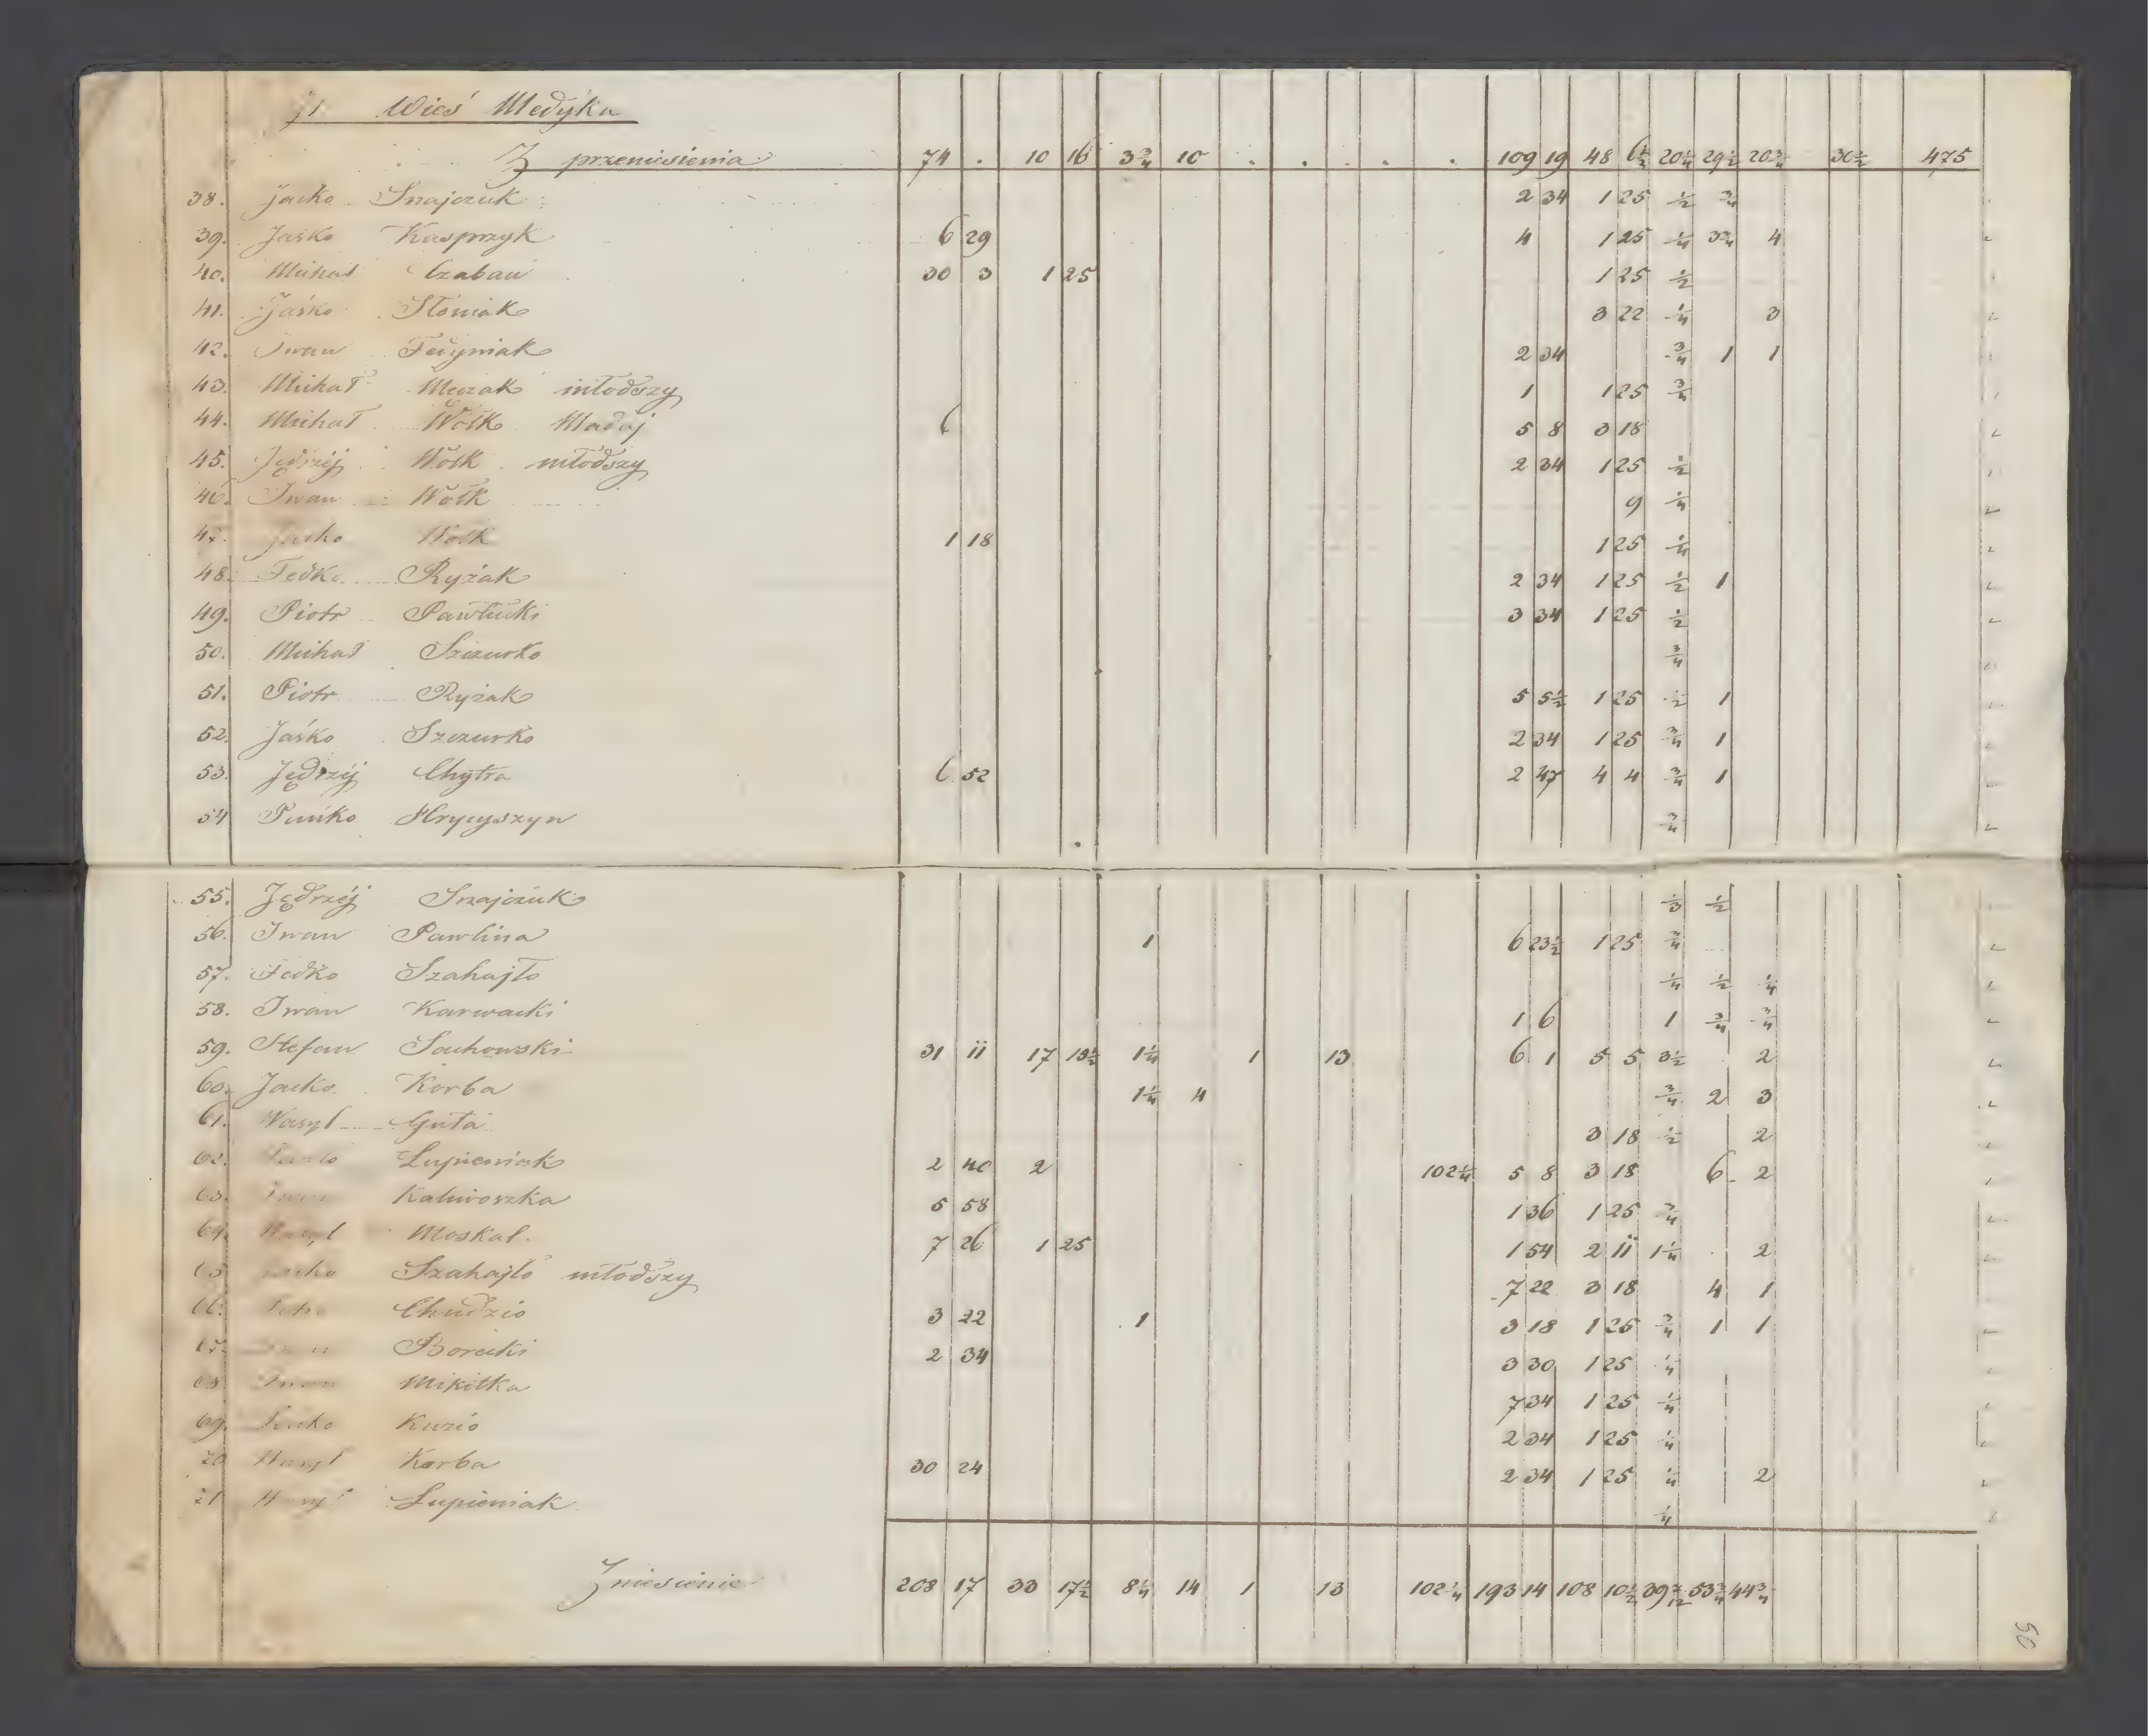 Wieś Medyka
Z przeniesienia 74 . 10 16 3 3/4 10 . . . . . 109 19 48 6 1/2 20 1/4 29 1/2 20 3/4 30 1/2 475
38. Jacko Snajczuk 2 34 1 25 1/2 3/4
39. Jaśko Kasprzyk 6 29 4 1 25 1/4 3 3/4 4
40. Michał Czaban 30 3 1 25 1 25 1/2
41. Jaśko Słoniak 3 22 1/4 3
42. Iwan Fedyniak 2 34 3/4 1 1
43. Michał młodszy 1 1 25 3/4
44. Michał Wołk Madaj 6 5 8 3 18
45. Jędrzéj Wołk młodszy 2 34 1 25 1/2
46. Iwan Wołk 9 1/4
47. Wołk 1 18 1 25 1/4
48. Fedko Ryżak 2 34 1 25 1/2 1
49. Piotr Pawłucki 3 34 1 25 1/2
50. Michał Szczurko 3/4
51. Piotr Ryżak 5 5 1/2 1 25 1/2 1
52. Jaśko Szczurko 2 34 1 25 3/4 1
53. Jędrzéj Chytra 6 52 2 47 4 4 3/4 1
54 Pańko Hrycyszyn 3/4
55. Jędrzéj Snajczuk 1/3 1/2
56. Iwan Pawlina 1 6 23 1/2 1 25 3/4
57. Fedko Szahajło 1/4 1/2 1/4
58. Iwan Karwacki 1 6 1 3/4 3/4
59. Stefan Sochowski 31 11 17 13 1/2 1 1/4 1 13 6 1 5 5 3 1/2 . 2
60. Jacko Korba 1 1/4 4 3/4 2 3
61. Wasyl Guta 3 18 1/2 2
62. Łupieniak 2 40 2 102 1/4 5 8 3 18 6 2
63. Kaliwoszka 5 58 1 36 1 25 3/4
64. Wasyl Moskal 7 26 1 25 1 54 2 11 1 1/4 . 2
65 Szahajło młodszy 7 22 3 18 4 1
66. Chudzio 3 22 1 3 18 1 25 3/4 1 1
67. Borecki 2 34 3 30 1 25 1/4
68 Iwan Mikitka 7 34 1 25 1/4
69. Kuzio 2 34 1 25 1/4
70 Wasyl Korba 30 24 2 34 1 25 1/4 2
71 Wasyl Łupieniak 1/4
Zniesienie 208 17 33 17 1/2 8 1/4 14 1 13 102 1/4 193 14 108 10 1/2 39 7/12 53 3/4 44 3/4
50